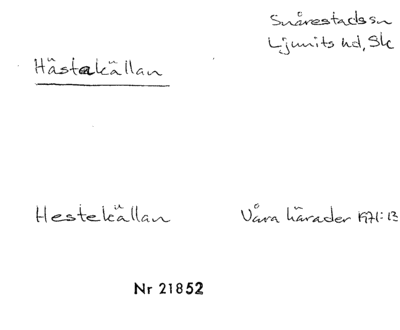 Snårestads sn
Ljunits hd, Sk
Hästakällan
Hestekällan
Våra härader 1971:13
Nr 21852